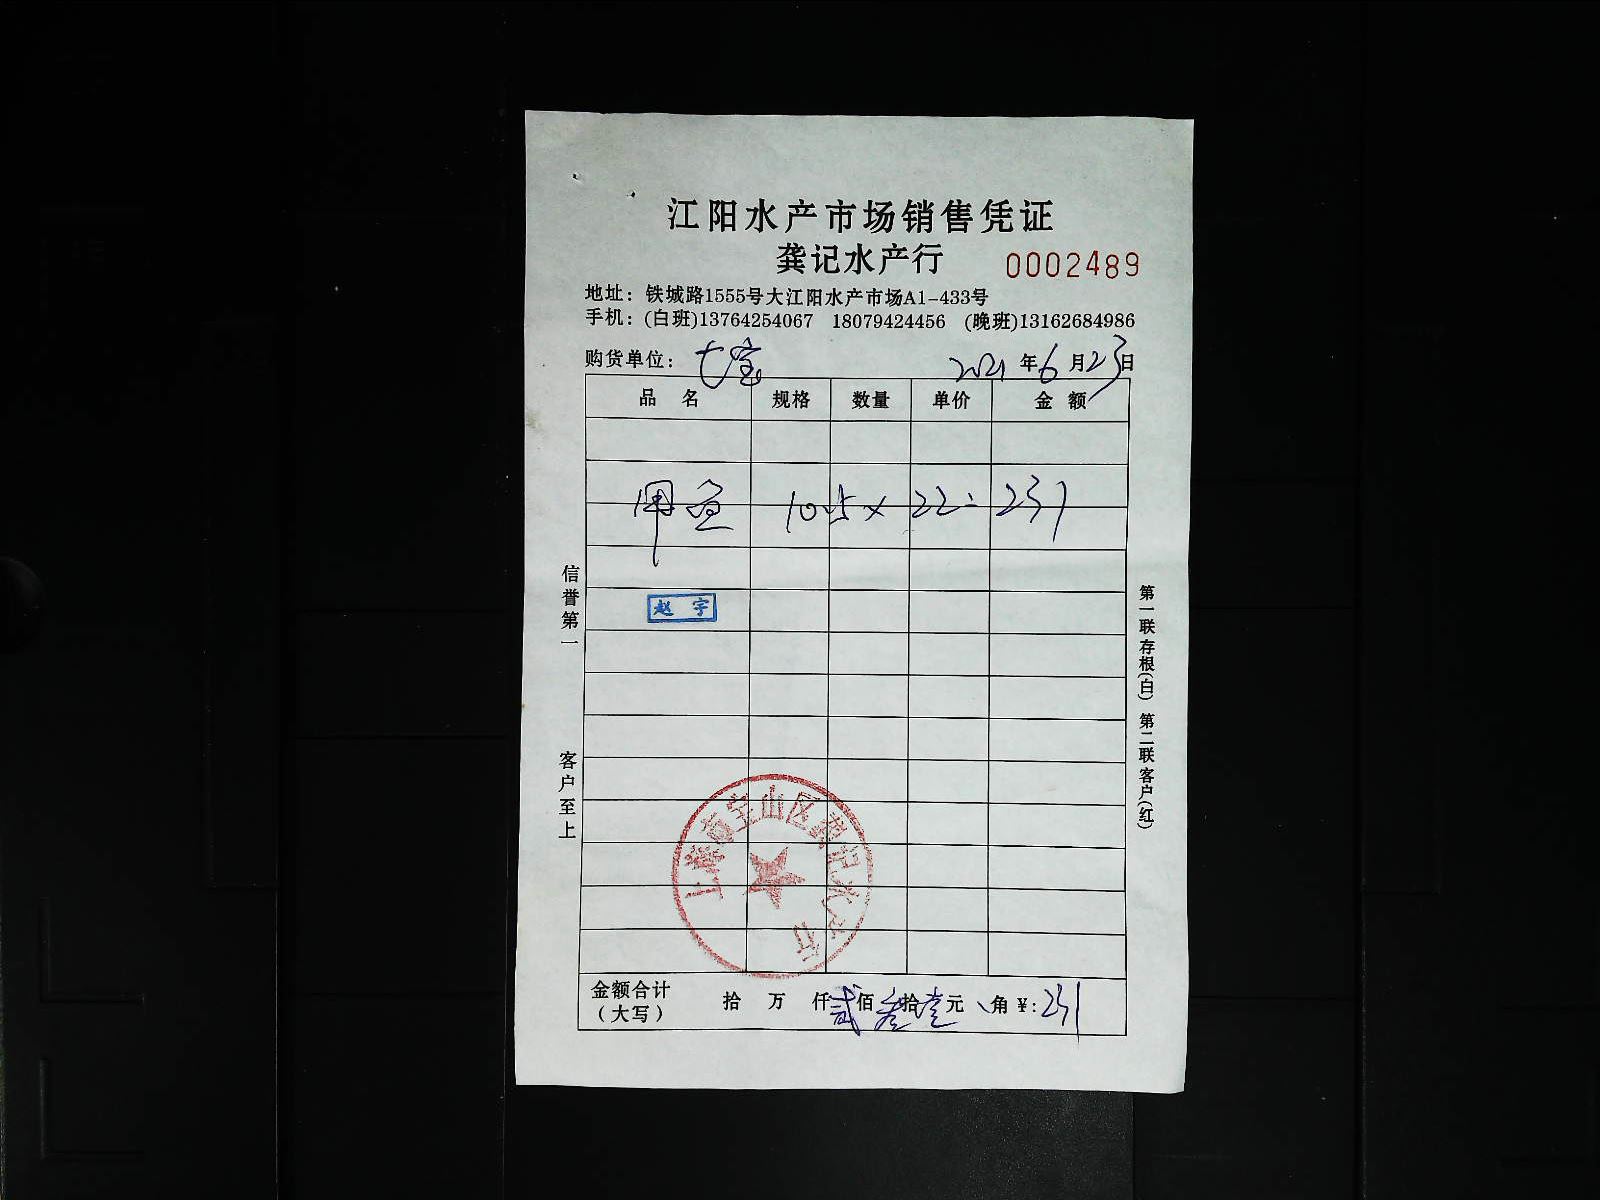 江阳水产市场销售凭证
龚记水产行 0002489
地址：铁城路1555号大江阳水产市场A1-433号
手机：(白班)13764254067 18079424456 (晚班)13162684986
购货单位：七宝 2021年6月23日
品名 规格 数量 单价 金额
甲鱼 10.5×22=231
赵宇
信誉第一
客户至上
第一联存根(白) 第二联客户(红)
上海市宝山区龚记水产行
金额合计 拾 万 仟贰佰叁拾壹元 角￥:231
（大写）